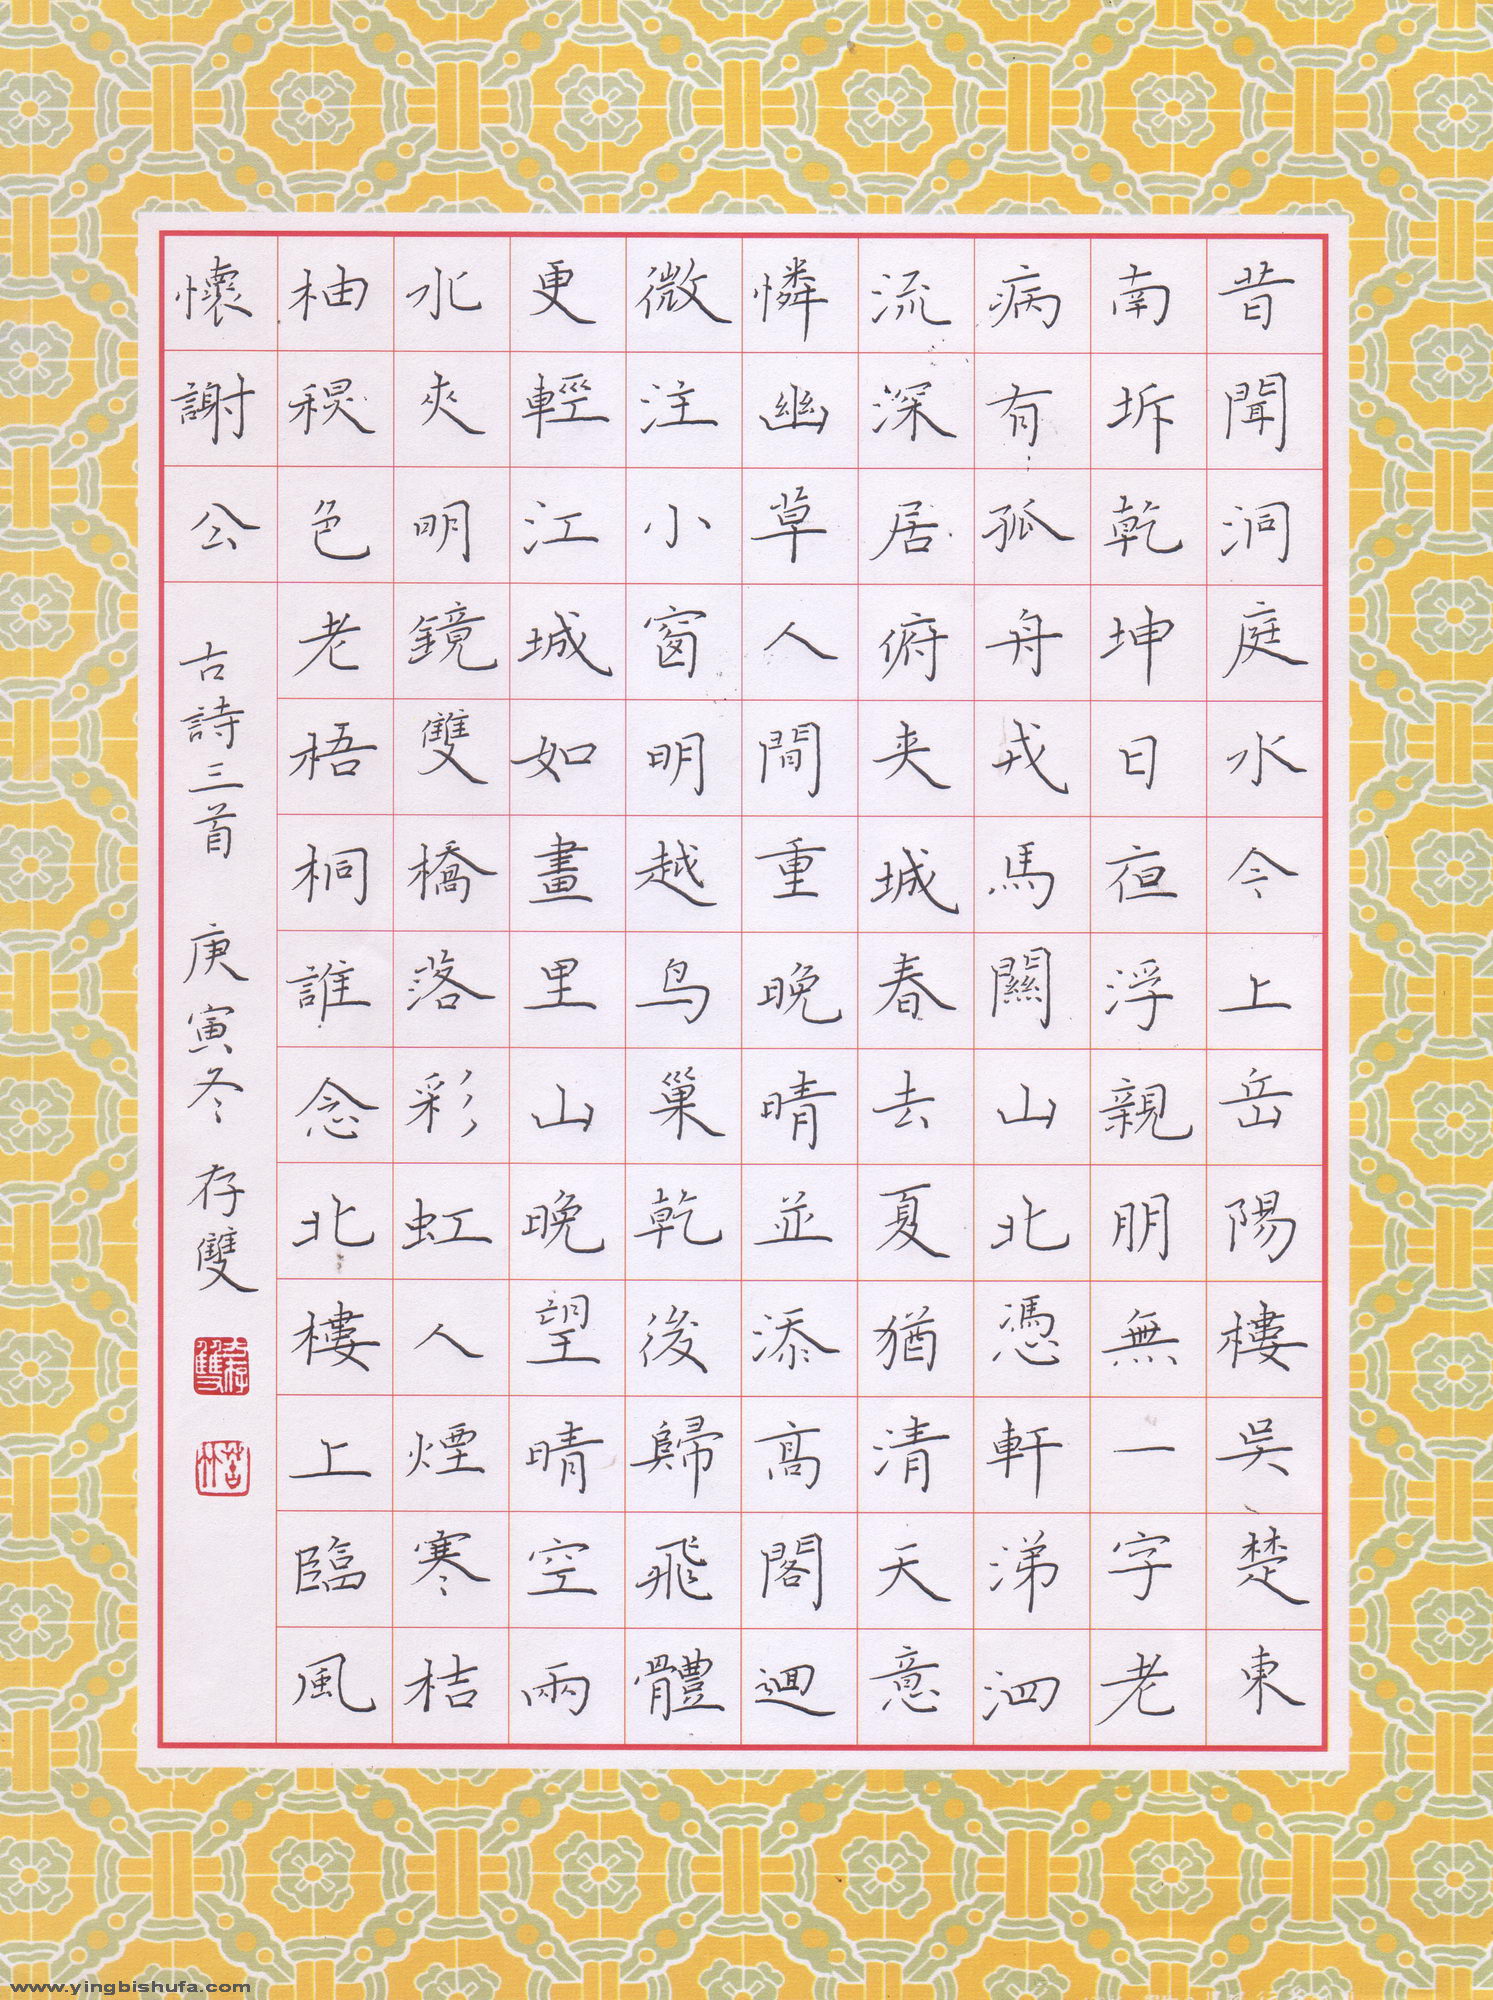 昔聞洞庭水今上岳陽樓吳楚東
南坼乾坤日夜浮親朋無一字老
病有孤舟戎馬關山北憑軒涕泗
流深居俯夹城春去夏猶清天意
憐幽草人間重晚晴並添高閣迥
微注小窗明越鸟巢乾後歸飛體
更輕江城如畫里山晚望晴空兩
水夾明鏡雙橋落彩虹人煙寒桔
柚秋色老梧桐誰念北樓上臨風
懷謝公
古詩三首 庚寅冬 存雙
www.yingbishufa.com